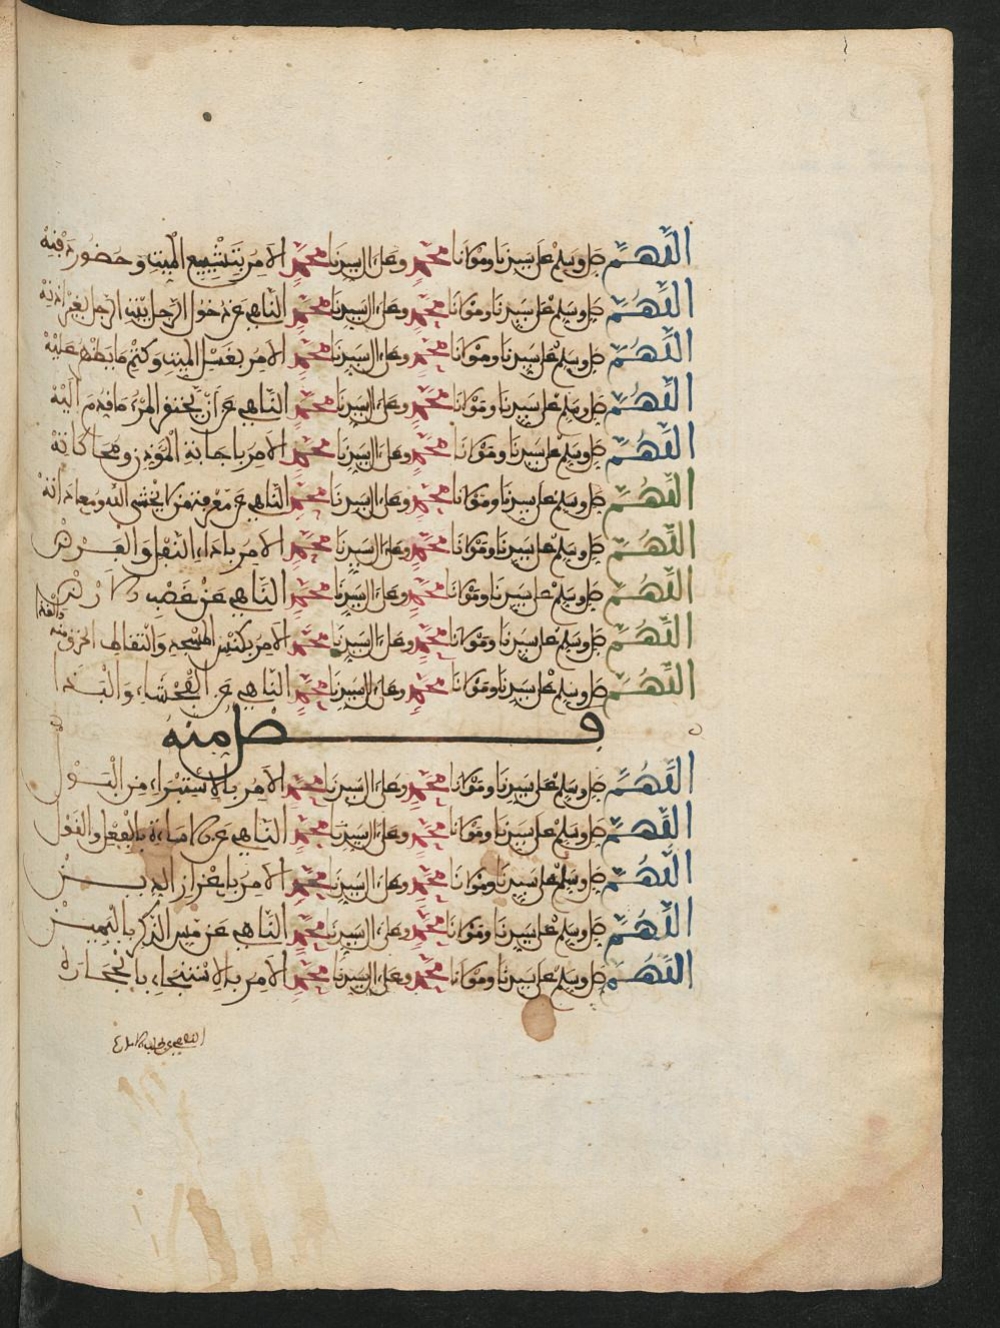 اللهم صل وسلم على سيدنا ومولانا محمد وعلى ءال سيدنا محمد الامر بتشييع الميت وحضور دفنه
اللهم صل وسلم على سيدنا ومولانا محمد وعلى ءال سيدنا محمد الناهي عن دخول الرجل بيت الرجل بغير اذنه
اللهم صل وسلم على سيدنا ومولانا محمد وعلى ءال سيدنا محمد الامر بغسل الميت وكتم ما يظهر عليه
اللهم صل وسلم على سيدنا ومولانا محمد وعلى ءال سيدنا محمد الناهي عن ان يحتقر المرء ما قدم اليه
اللهم صل وسلم على سيدنا ومولانا محمد وعلى ءال سيدنا محمد الامر باجابة المؤذن ومحاكاته
اللهم صل وسلم على سيدنا ومولانا محمد وعلى ءال سيدنا محمد الناهي عن معرفة من لا يخشى الله ومعاداته
اللهم صل وسلم على سيدنا ومولانا محمد وعلى ءال سيدنا محمد الامر باداء النفل والفرض
اللهم صل وسلم على سيدنا ومولانا محمد وعلى ءال سيدنا محمد الناهي عن غصب الارض
اللهم صل وسلم على سيدنا ومولانا محمد وعلى ءال سيدنا محمد الامر بكنس المسجد والتقاط الخرق منه
اللهم صل وسلم على سيدنا ومولانا محمد وعلى ءال سيدنا محمد الناهي عن الفحشاء والبذا
فصل منه
اللهم صل وسلم على سيدنا ومولانا محمد وعلى ءال سيدنا محمد الامر بالاستبراء من البول
اللهم صل وسلم على سيدنا ومولانا محمد وعلى ءال سيدنا محمد الناهي عن الاساءة بالفعل والقول
اللهم صل وسلم على سيدنا ومولانا محمد وعلى ءال سيدنا محمد الامر باعزاز الدين
اللهم صل وسلم على سيدنا ومولانا محمد وعلى ءال سيدنا محمد الناهي عن مس الذكر باليمين
اللهم صل وسلم على سيدنا ومولانا محمد وعلى ءال سيدنا محمد الامر بالاستنجاء بالحجارة
الناهي عن